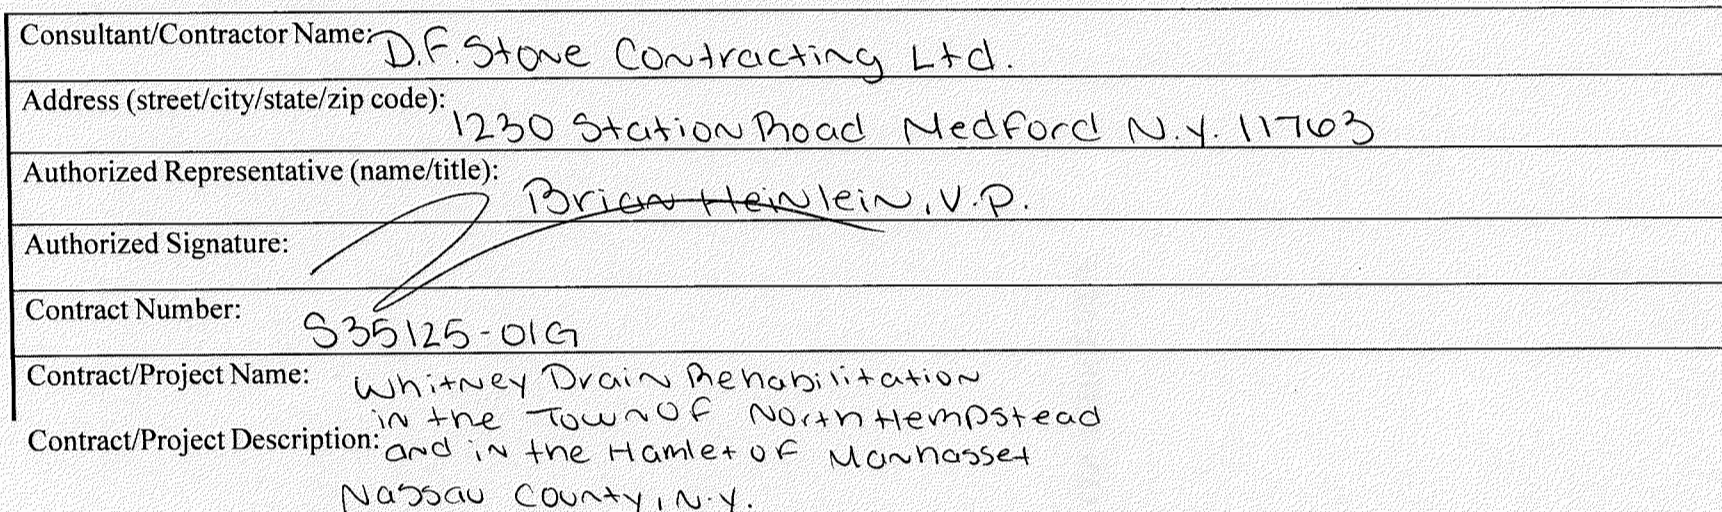 Consultant/Contractor Name: D.F. Stone Contracting Ltd.
Address (street/city/state/zip code): 1230 Station Road Medford N.Y. 11763
Authorized Representative (name/title): Brian Heinlein, V.P.
Authorized Signature:
Contract Number: S35125-01G
Contract/Project Name: Whitney Drain Rehabilitation
in the Town Of North Hempstead
Contract/Project Description: and in the Hamlet of Manhasset
Nassau County, N.Y.